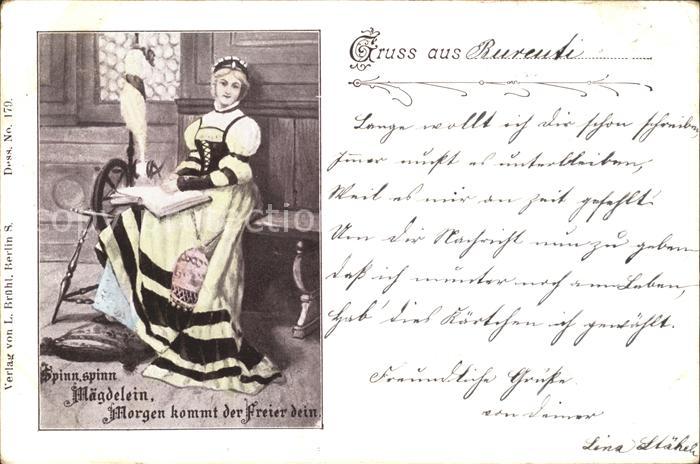 Gruss aus Rureuti
Lange wollt ich dir schon schreiben
Immer mußt es unterbleiben,
Weil es mir an Zeit gefehlt.
Um dir Nachricht nun zu geben
daß ich munter noch am Leben,
Hab' dies Kärtchen ich gewählt.
Freundliche Grüße
von deiner
Lina Stähel
Spinn, spinn
Mägdelein,
Morgen kommt der Freier dein.
Verlag von L. Brühl, Berlin S. Dess. No. 179.